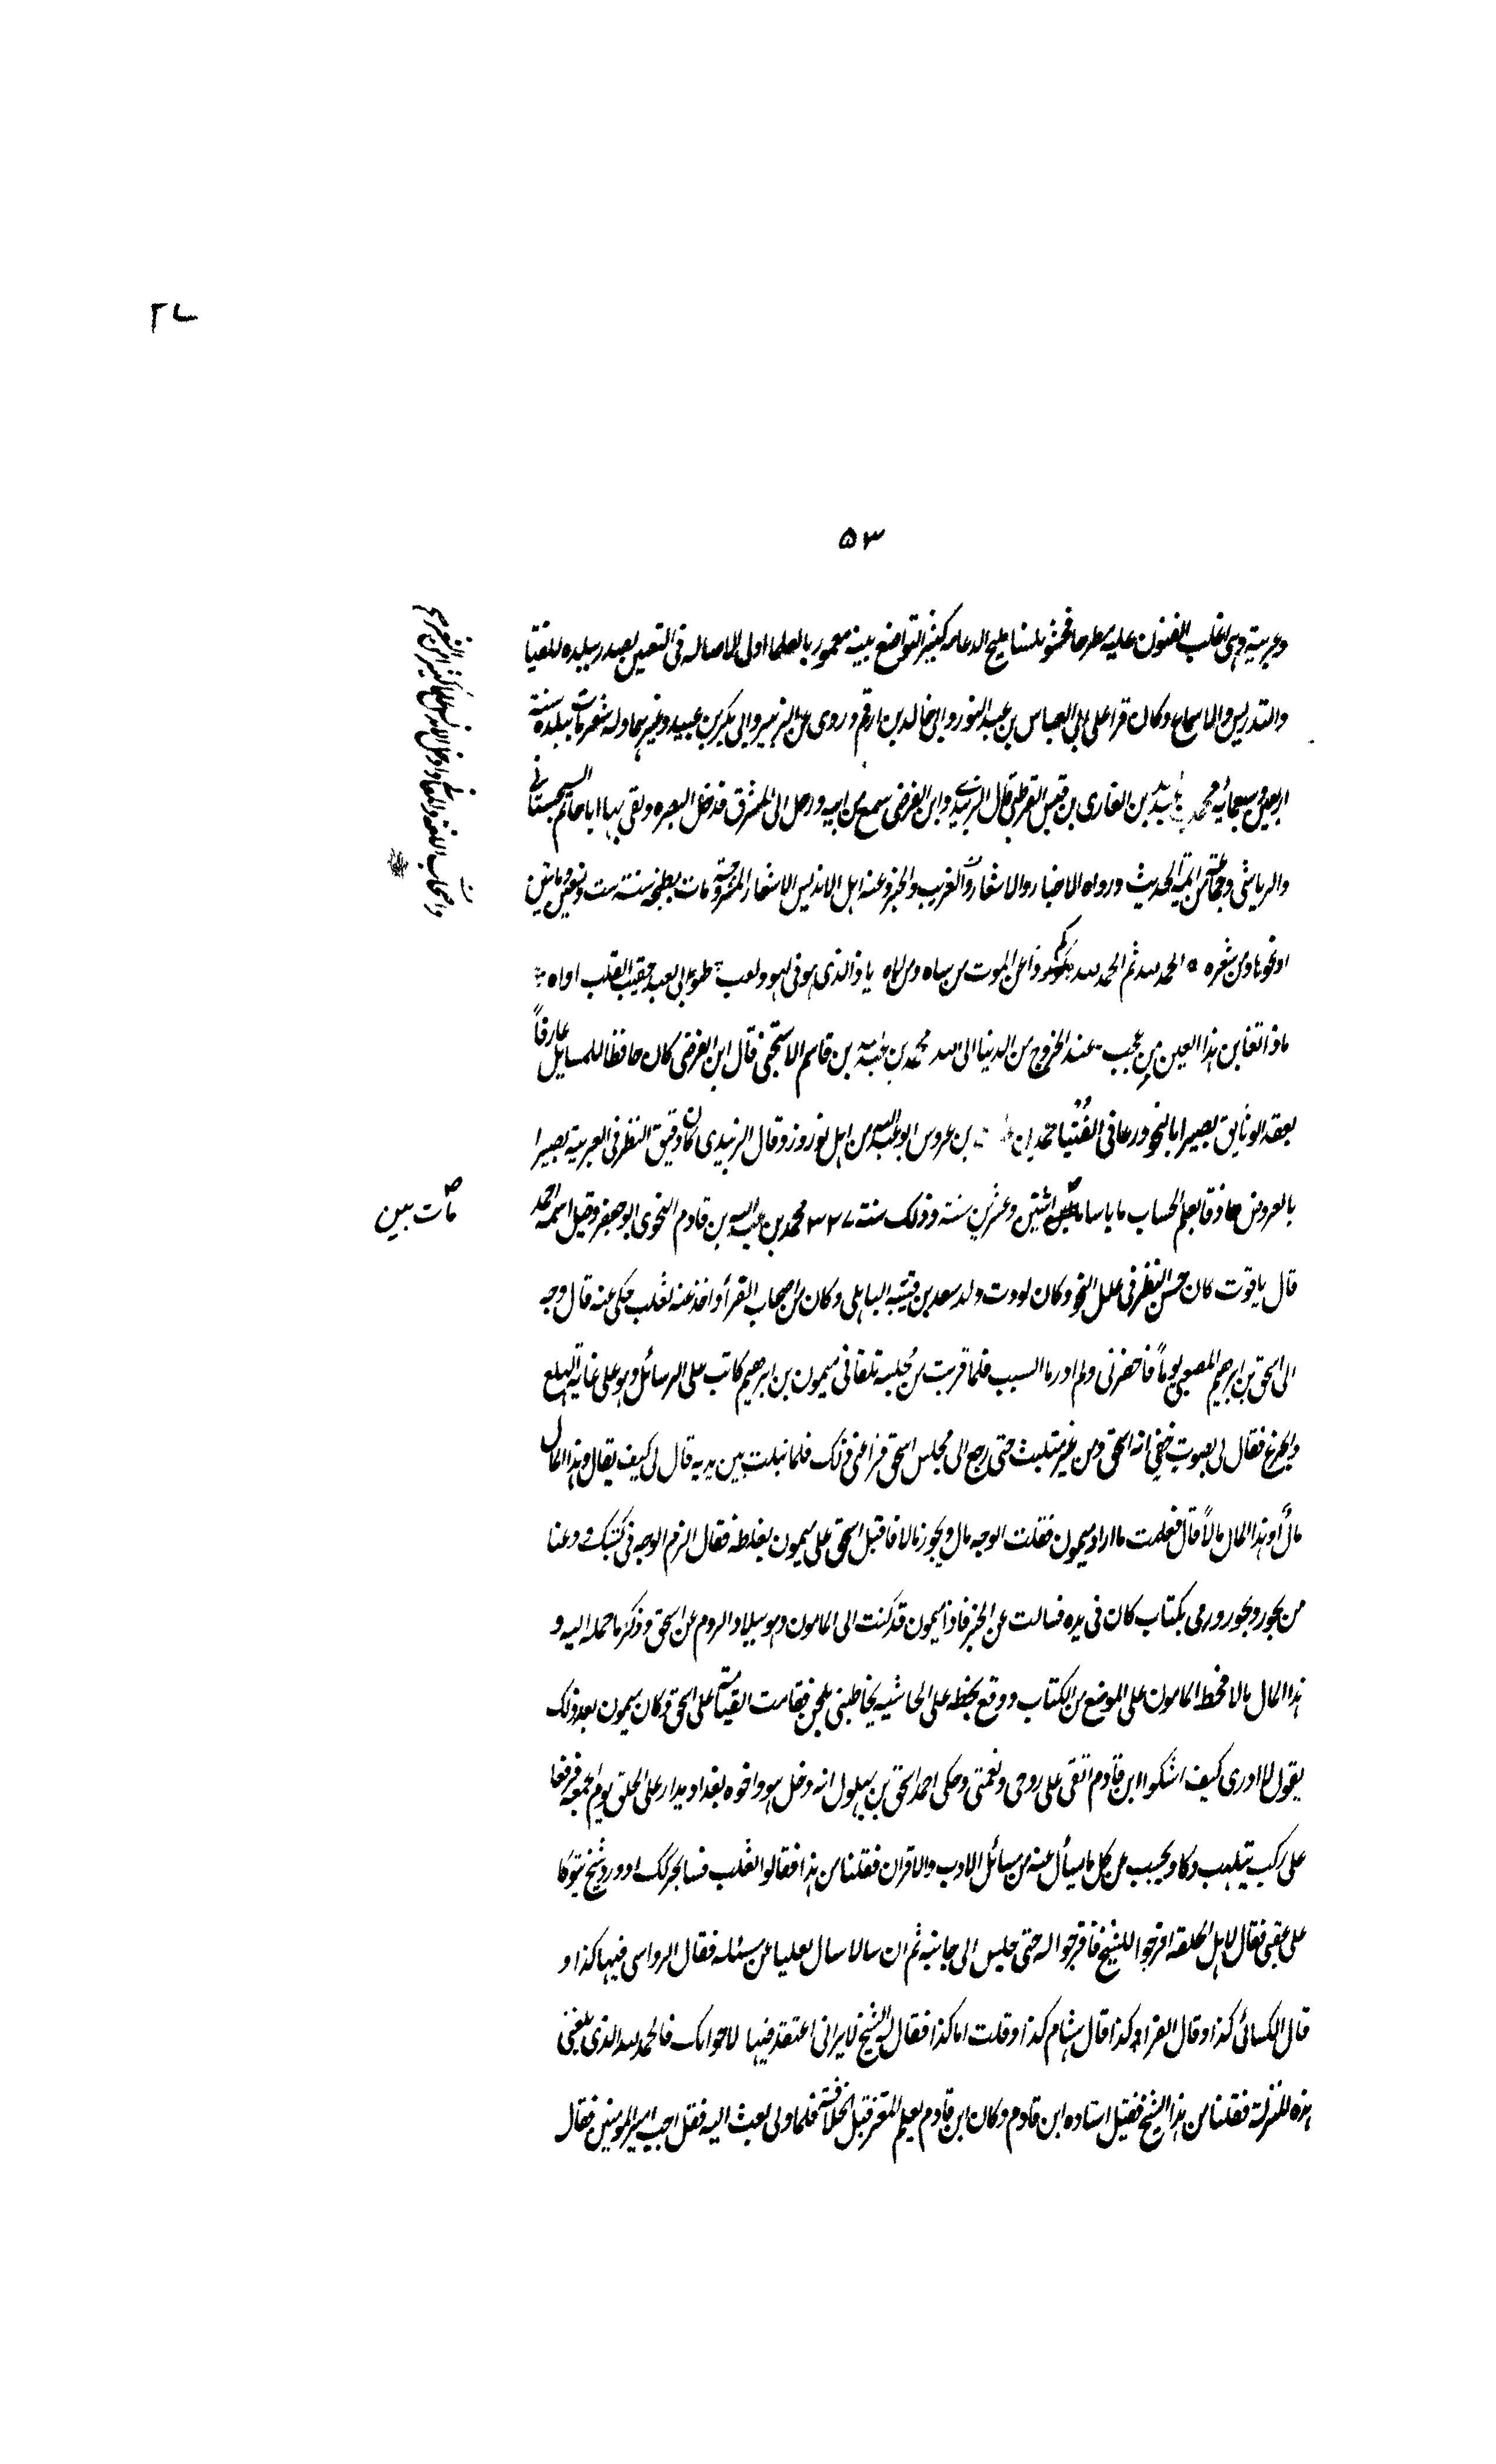 ٢٧
٥٣
وعربية وهى اغلب الفنون عليه مطرحا مخشوشنا مليح الدعابه كثير التواضع بيته معمور بالعلما اولى الاصاله فى التعيين بصدر ببلده للفتيا
والتدريس والاسماع وكان قرا على ابى العباس بن عبد النور وابى خالد بن ارقم وروى عن ابن الزبير وابى بكر بن عبيد وغيرهما وله شعر مات ببلده سنة
اربعين وسبعمائه محمد بن الغازى بن قيس القرطبى قال الزبيدى وابن الفرضى سمع من ابيه ورحل الى المشرق فدخل البصره ولقى بها ابا حاتم السجستانى
والرياشى وجماعة من ائمة الحديث ورواه الاخبار والاشعار والغريب والخبر وعنه اهل الاندلس الاشعار المشروحة مات بطنجه سنة ست وتسعين ومايتين
او نحوها ومن شعره الحمد لله ثم الحمد لله كم ذا عن الموت من ساه ومن لاه يا ذا الذى هو فى لهو ولعب طوبى لعبد حقيب القلب اواه
ماذا تعاين هذا العين من عجب عند الخروج من الدنيا الى الله محمد بن عبد الله بن قاسم الاستجى قال ابن الفرضى كان حافظا للمسايل عارفاً
بعقد الوثايق بصيرا بالنحو ورعا فى الفتيا محمد بن بن عروس ابو عبد الله من اهل نوزوز وقال الزبيدى كان دقيق النظر فى العربية بصيرا
بالعروض حاذقا بعلم الحساب اثنتين وعشرين سنة وذلك سنة ٣٢٧ محمد بن عبد الله بن قادم النحوى ابو جعفر وقيل اسمه احمد
مات بين
قال ياقوت كان حسن النظر فى علل النحو وكان يودب ولد سعد بن قتيبه الباهلى وكان من اصحاب الفرأ واخذ عنه ثعلب حكى عنه قال وجه
الى اسحق بن ابرهيم المصعبى يوماً فاحضرنى ولم ادر ما السبب فلما قربت من مجلسه تلقانى ميمون بن ابرهيم كاتب على الرسائل وهو على غاية الهلع
والجزع فقال لى بصوت خفى انه اسحق ومن غير متلبث حتى رجع الى مجلس اسحق فراعنى ذلك فلما مثلت بين يديه قال لى كيف يقال وهذا المال
مالٌ او هذا المال مالاً قال فعلمت ما اراد ميمون فقلت الوجه مال ويجوز مالا فاقبل اسحق على ميمون بغلظه فقال الزم الوجه فى كتبك ودعنا
من يجوز ويجوز ورمى بكتاب كان فى يده فسالت عن الخبر فاذا ميمون قد كتب الى المامون وهو ببلاد الروم عن اسحق وذكر ما حمله اليه و
هذا المال مالا فخط المامون على الموضع من الكتاب ووقع بخطه على الحاشيه يخاطبنى بلحن فقامت القيامة على اسحق وكان ميمون بعد ذلك
يقول لا ادرى كيف اشكوا ابن قادم ابقى على روحى ونعمتى وحكى احمد اسحق بن بهلول انه دخل هو واخوه بغداد يدار على الحلق يوم الجمعه فوقفا
على ركب يتلهب ذكا ويجيب عن كل ما يسأل عنه من مسائل الادب والاقران فقلنا من هذا فقالوا ثعلب فبينا نحن كذلك اذ ورد شيخ يتوكا
على عصى فقال لاهل الحلقه افرجوا للشيخ فافرجوا له حتى جلس الى جانبه ثم ان سائلا سال ثعلبا عن مسئله فقال الرواسى فيها كذا و
قال الكسائى كذا وقال الفراء كذا قال هشام كذا وقلت انا كذا فقال له الشيخ لا يرانى اعتقد فيها الا جوابك فالحمد لله الذى بلغنى
هذه المنزلة فقلنا من هذا الشيخ فقيل استاده ابن قادم وكان ابن قادم يعلم المعتز قبل الخلافة فلما ولى بعث اليه فقيل اجب امير المومنين فقال